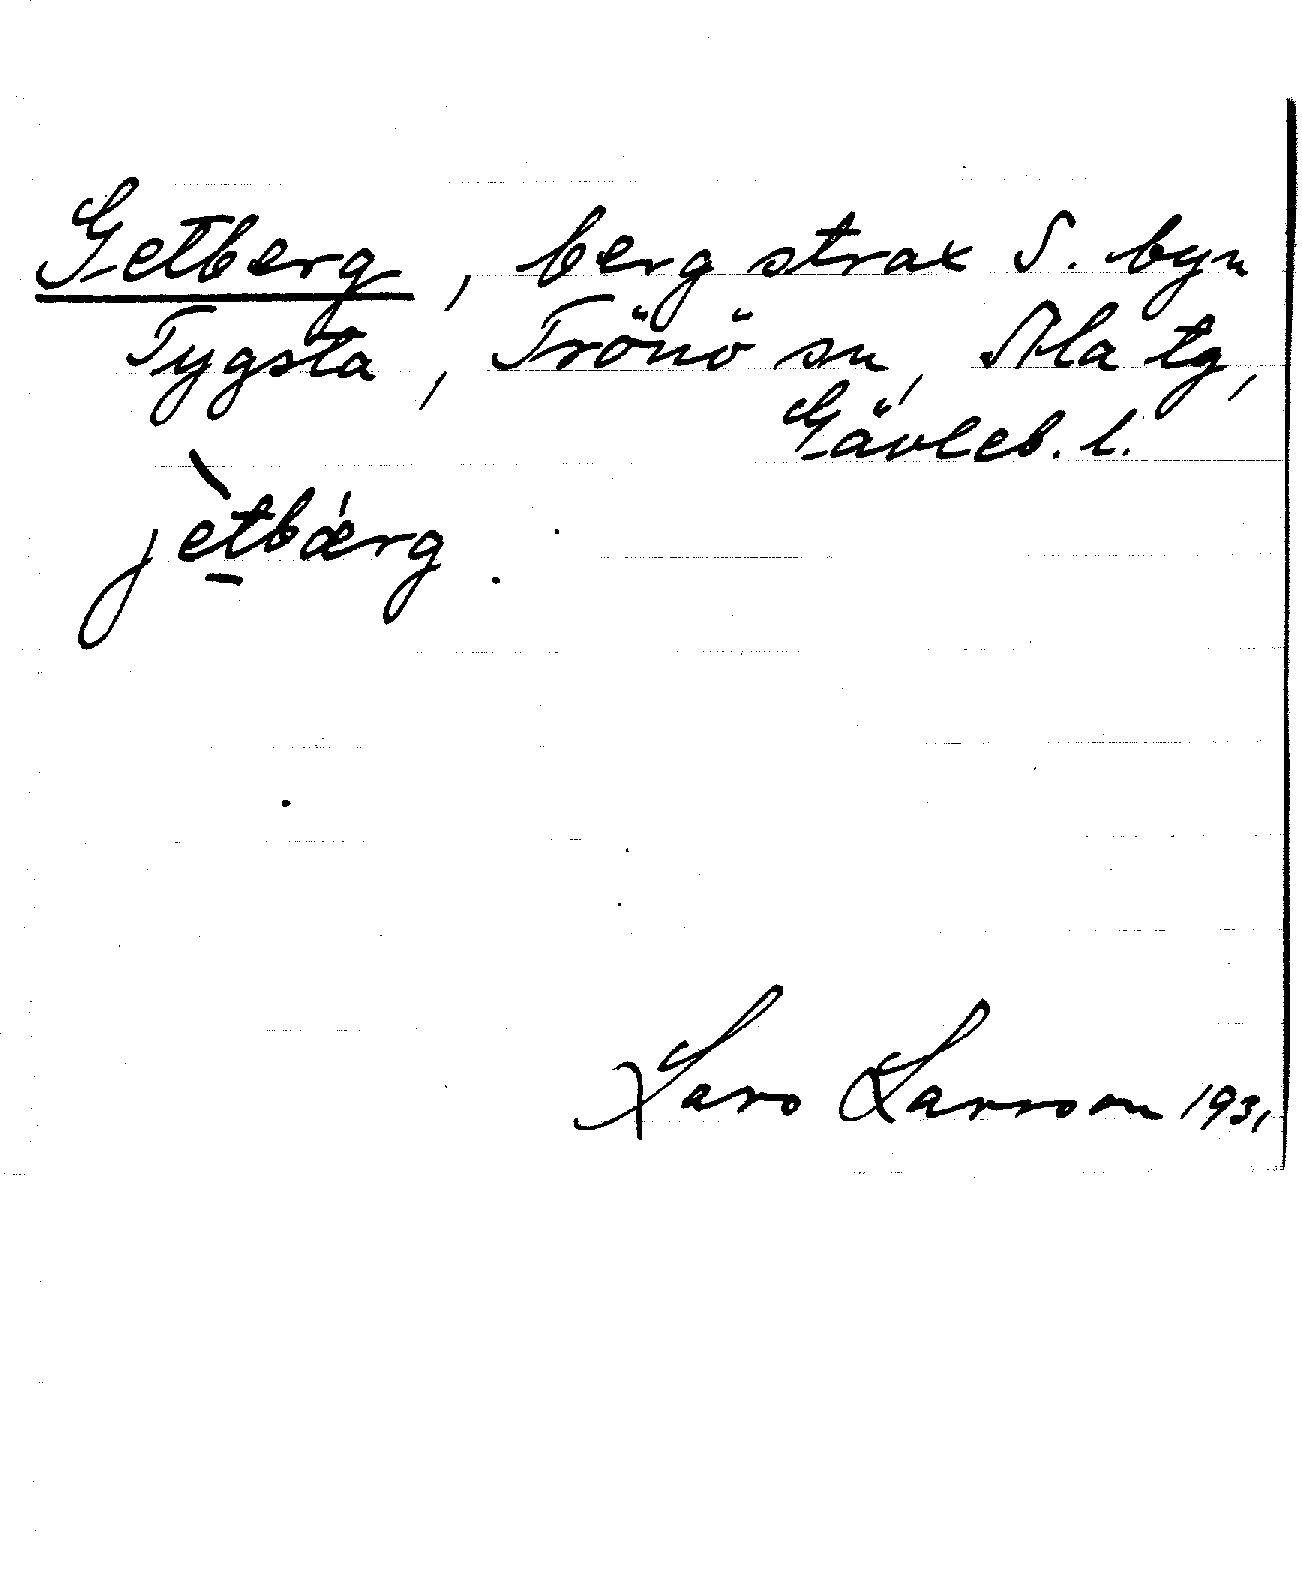 Getberg, berg strax S. byn
Tygsta, Trönö sn, Ala tg,
Gävleb. l.
jètbǽrg.
Lars Larsson 1931